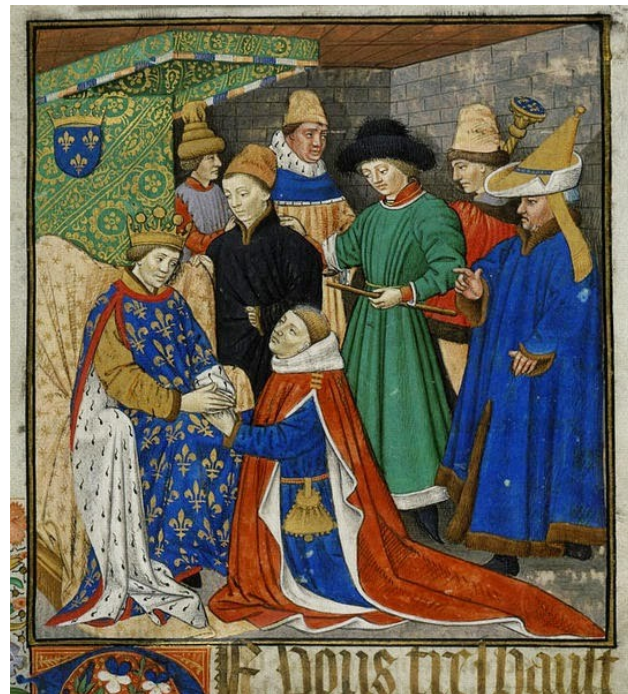 E vous treshault